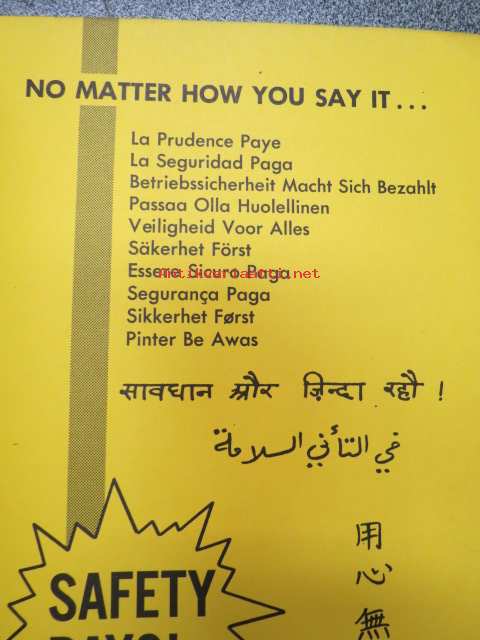 NO MATTER HOW YOU SAY IT...
La Prudence Paye
La Seguridad Paga
Betriebssicherheit Macht Sich Bezahlt
Passaa Olla Huolellinen
Veiligheid Voor Alles
Säkerhet Först
Essere Sicuro Paga
Segurança Paga
Sikkerhet Førs​t
Pinter Be Awas
सावधान और ज़िन्दा रहौ !
في التأني السلامة
用
心
無
SAFETY
PAYS!